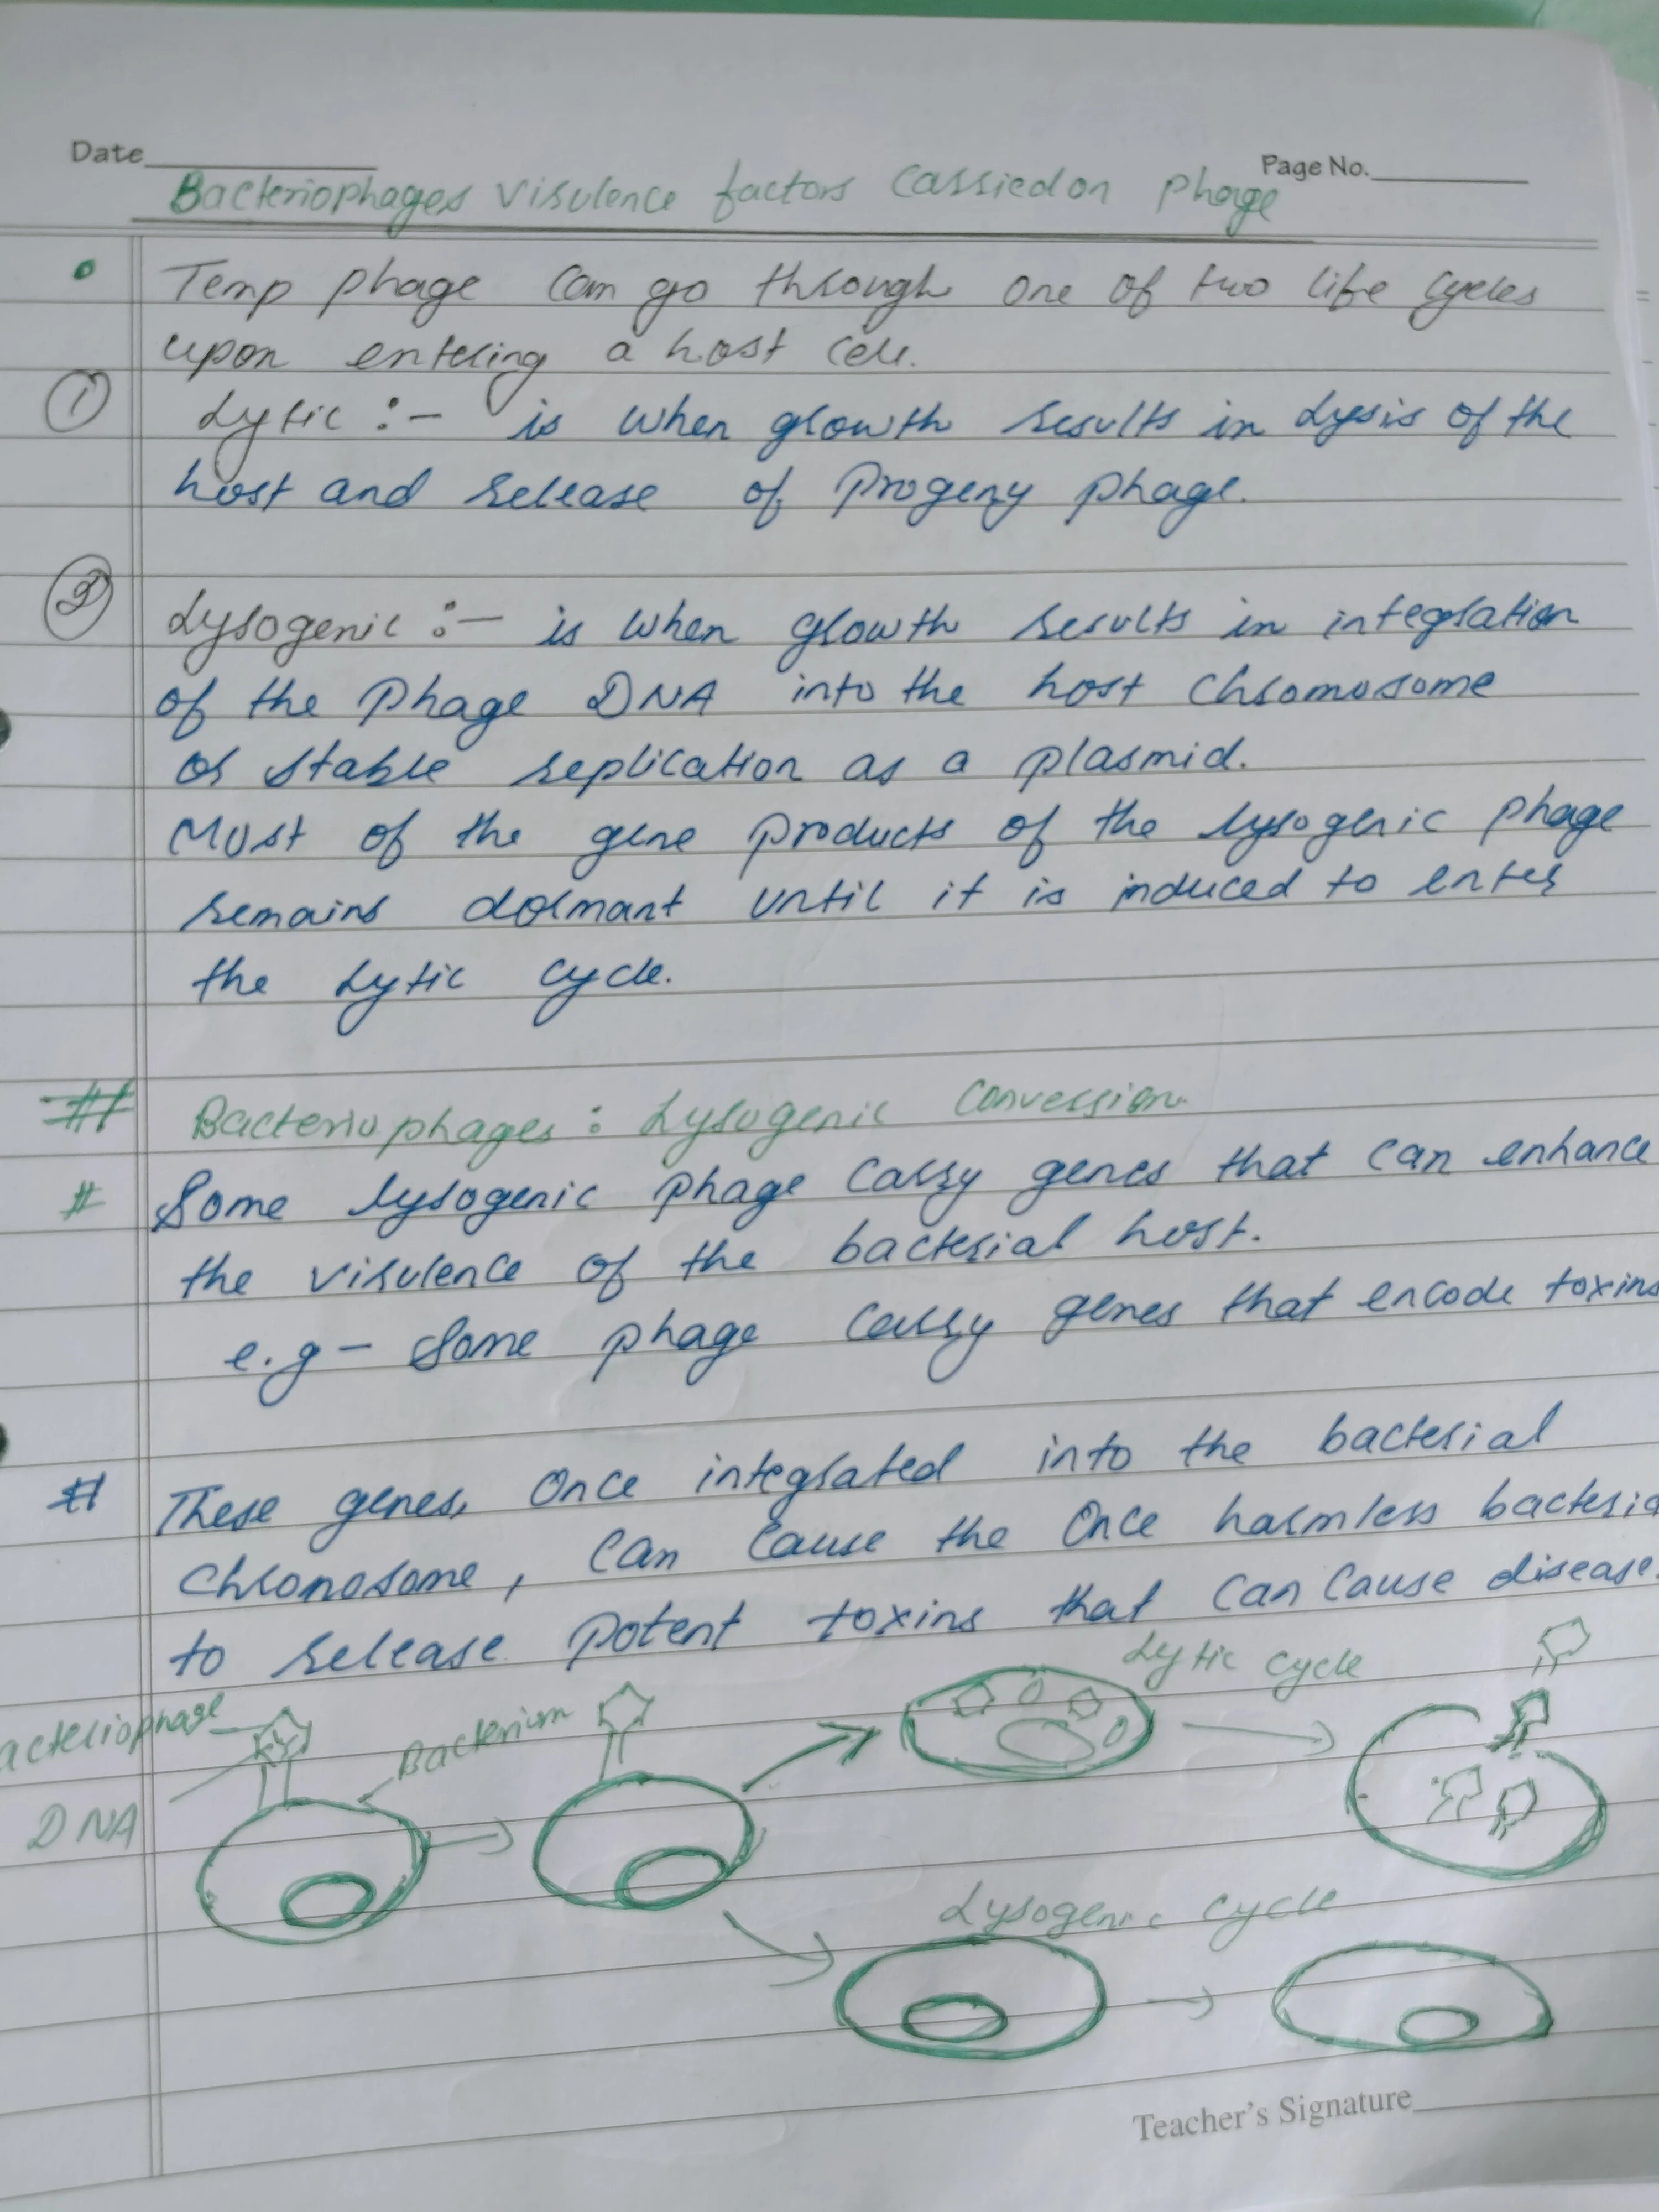 Date
Page No.
Bacteriophages virulence factors carried on phage
• Temp phage can go through one of two life cycles
upon entering a host cell.
① Lytic :- is when growth results in Lysis of the
host and release of progeny phage.
② Lysogenic :- is when growth results in integration
of the Phage DNA into the host chromosome
or stable replication as a plasmid.
Most of the gene products of the lysogenic phage
remains dormant until it is induced to enter
the Lytic cycle.
# Bacteriophages : Lysogenic Conversion
# Some lysogenic phage carry genes that can enhance
the virulence of the bacterial host.
e.g - Some phage carry genes that encode toxins
# These genes, once integrated into the bacterial
chromosome, can cause the once harmless bacteria
to release potent toxins that can cause disease.
Lytic cycle
acteriophage
Bacterium
DNA
Lysogenic cycle
Teacher's Signature